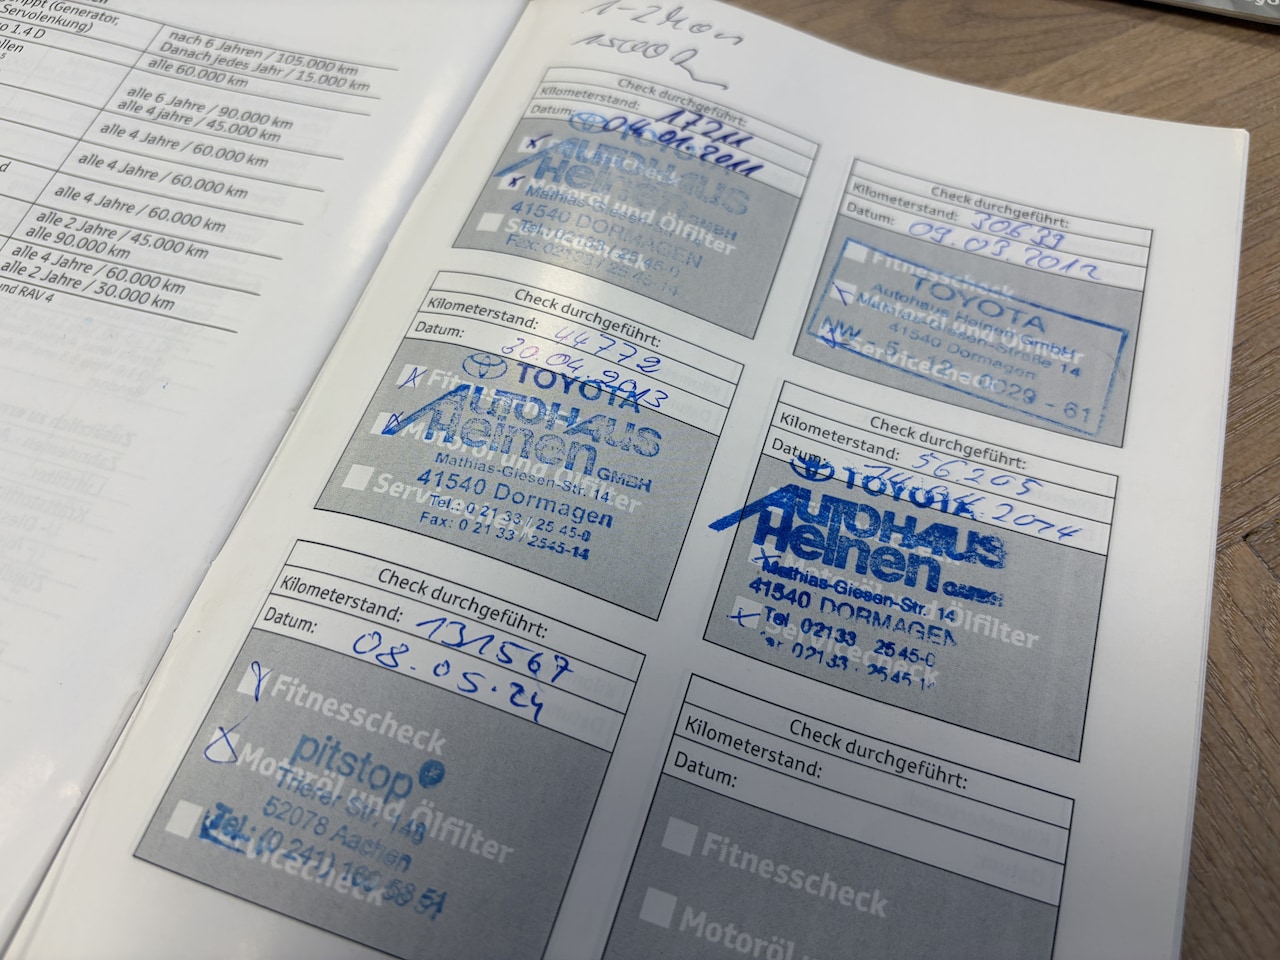 ript (Generator,
Servolenkung)
nach 6 Jahren / 105.000 km
Danach jedes Jahr / 15.000 km
o 1.4 D
alle 60.000 km
llen
alle 6 Jahre / 90.000 km
alle 4 jahre / 45.000 km
alle 4 Jahre / 60.000 km
alle 4 Jahre / 60.000 km
alle 4 Jahre / 60.000 km
alle 2 Jahre / 45.000 km
alle 90.000 km
alle 4 Jahre / 60.000 km
alle 2 Jahre / 30.000 km
und RAV 4
Check durchgeführt:
Kilometerstand: 17211
Datum: 04.01.2011
Motoröl und Ölfilter
Servicecheck
TOYOTA
AUTOHAUS
Heinen GMBH
Mathias-Giesen-Str. 14
41540 DORMAGEN
Check durchgeführt:
Kilometerstand: 30639
Datum: 09.03.2012
Fitnesscheck
Motoröl und Ölfilter
Servicecheck
TOYOTA
Autohaus Heinen GmbH
Mathias-Giesen-Straße 14
41540 Dormagen
Check durchgeführt:
Kilometerstand: 44772
Datum: 30.04.2013
Motoröl und Ölfilter
TOYOTA
AUTOHAUS
Heinen GMBH
Mathias-Giesen-Str. 14
41540 Dormagen
Tel.: 0 21 33 / 25 45-0
Fax: 0 21 33 / 2545-14
Check durchgeführt:
Kilometerstand: 56.205
Datum:
Motoröl und Ölfilter
Servicecheck
TOYOTA
AUTOHAUS
Heinen GMBH
Mathias-Giesen-Str. 14
41540 DORMAGEN
Tel. 02133 2545-0
Check durchgeführt:
Kilometerstand: 131567
Datum: 08.05.24
Fitnesscheck
Motoröl und Ölfilter
Servicecheck
pitstop
Trierer Str. 148
52078 Aachen
Check durchgeführt:
Kilometerstand:
Datum:
Fitnesscheck
Motoröl